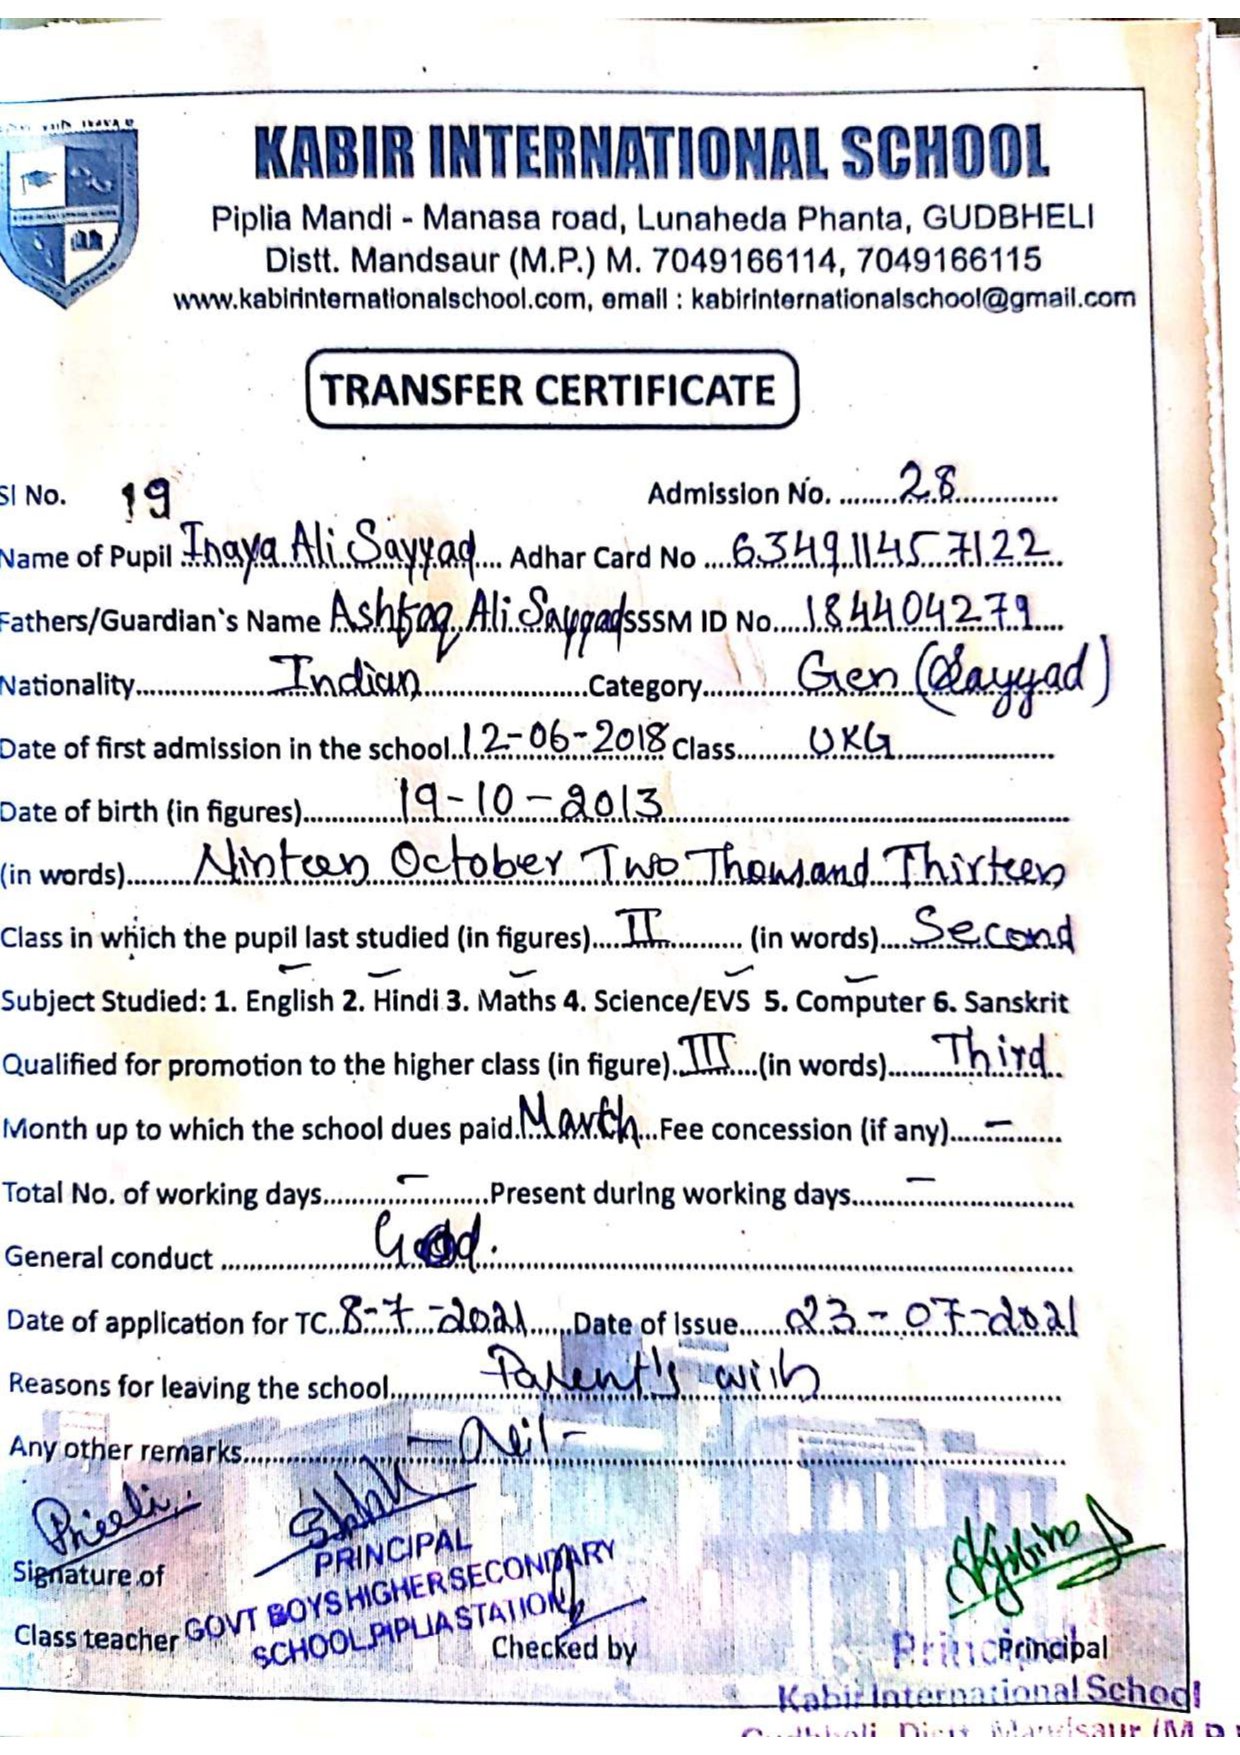 KABIR INTERNATIONAL SCHOOL
Piplia Mandi - Manasa road, Lunaheda Phanta, GUDBHELI
Distt. Mandsaur (M.P.) M. 7049166114, 7049166115
www.kabirinternationalschool.com, email : kabirinternationalschool@gmail.com
TRANSFER CERTIFICATE
Sl No. 19 Admission No. ........28.............
Name of Pupil Inaya Ali Sayyad.... Adhar Card No ....634911457122
Fathers/Guardian`s Name Ashfaq Ali Sayyad SSSM ID No.....184404279....
Nationality..................Indian......................Category............Gen (Sayyad)
Date of first admission in the school..12-06-2018 Class.........UKG..................
Date of birth (in figures)..............19-10-2013..................
(in words).........Ninteen October Two Thousand Thirteen
Class in which the pupil last studied (in figures)....II........... (in words).....Second
Subject Studied: 1. English 2. Hindi 3. Maths 4. Science/EVS 5. Computer 6. Sanskrit
Qualified for promotion to the higher class (in figure).III....(in words).........Third..
Month up to which the school dues paid.March...Fee concession (if any).....–.......
Total No. of working days.........–...........Present during working days.......–..............
General conduct ....................Good.......................
Date of application for TC..8-7-2021......Date of Issue......23-07-2021
Reasons for leaving the school............Parent's wish........................
Any other remarks....................-Neil-..........................
Preeti
PRINCIPAL
GOVT BOYS HIGHER SECONDARY
SCHOOL, PIPLIA STATION
Signature of
Class teacher
Checked by
Principal
Principal
Kabir International School
Gudbheli, Distt. Mandsaur (M.P.)